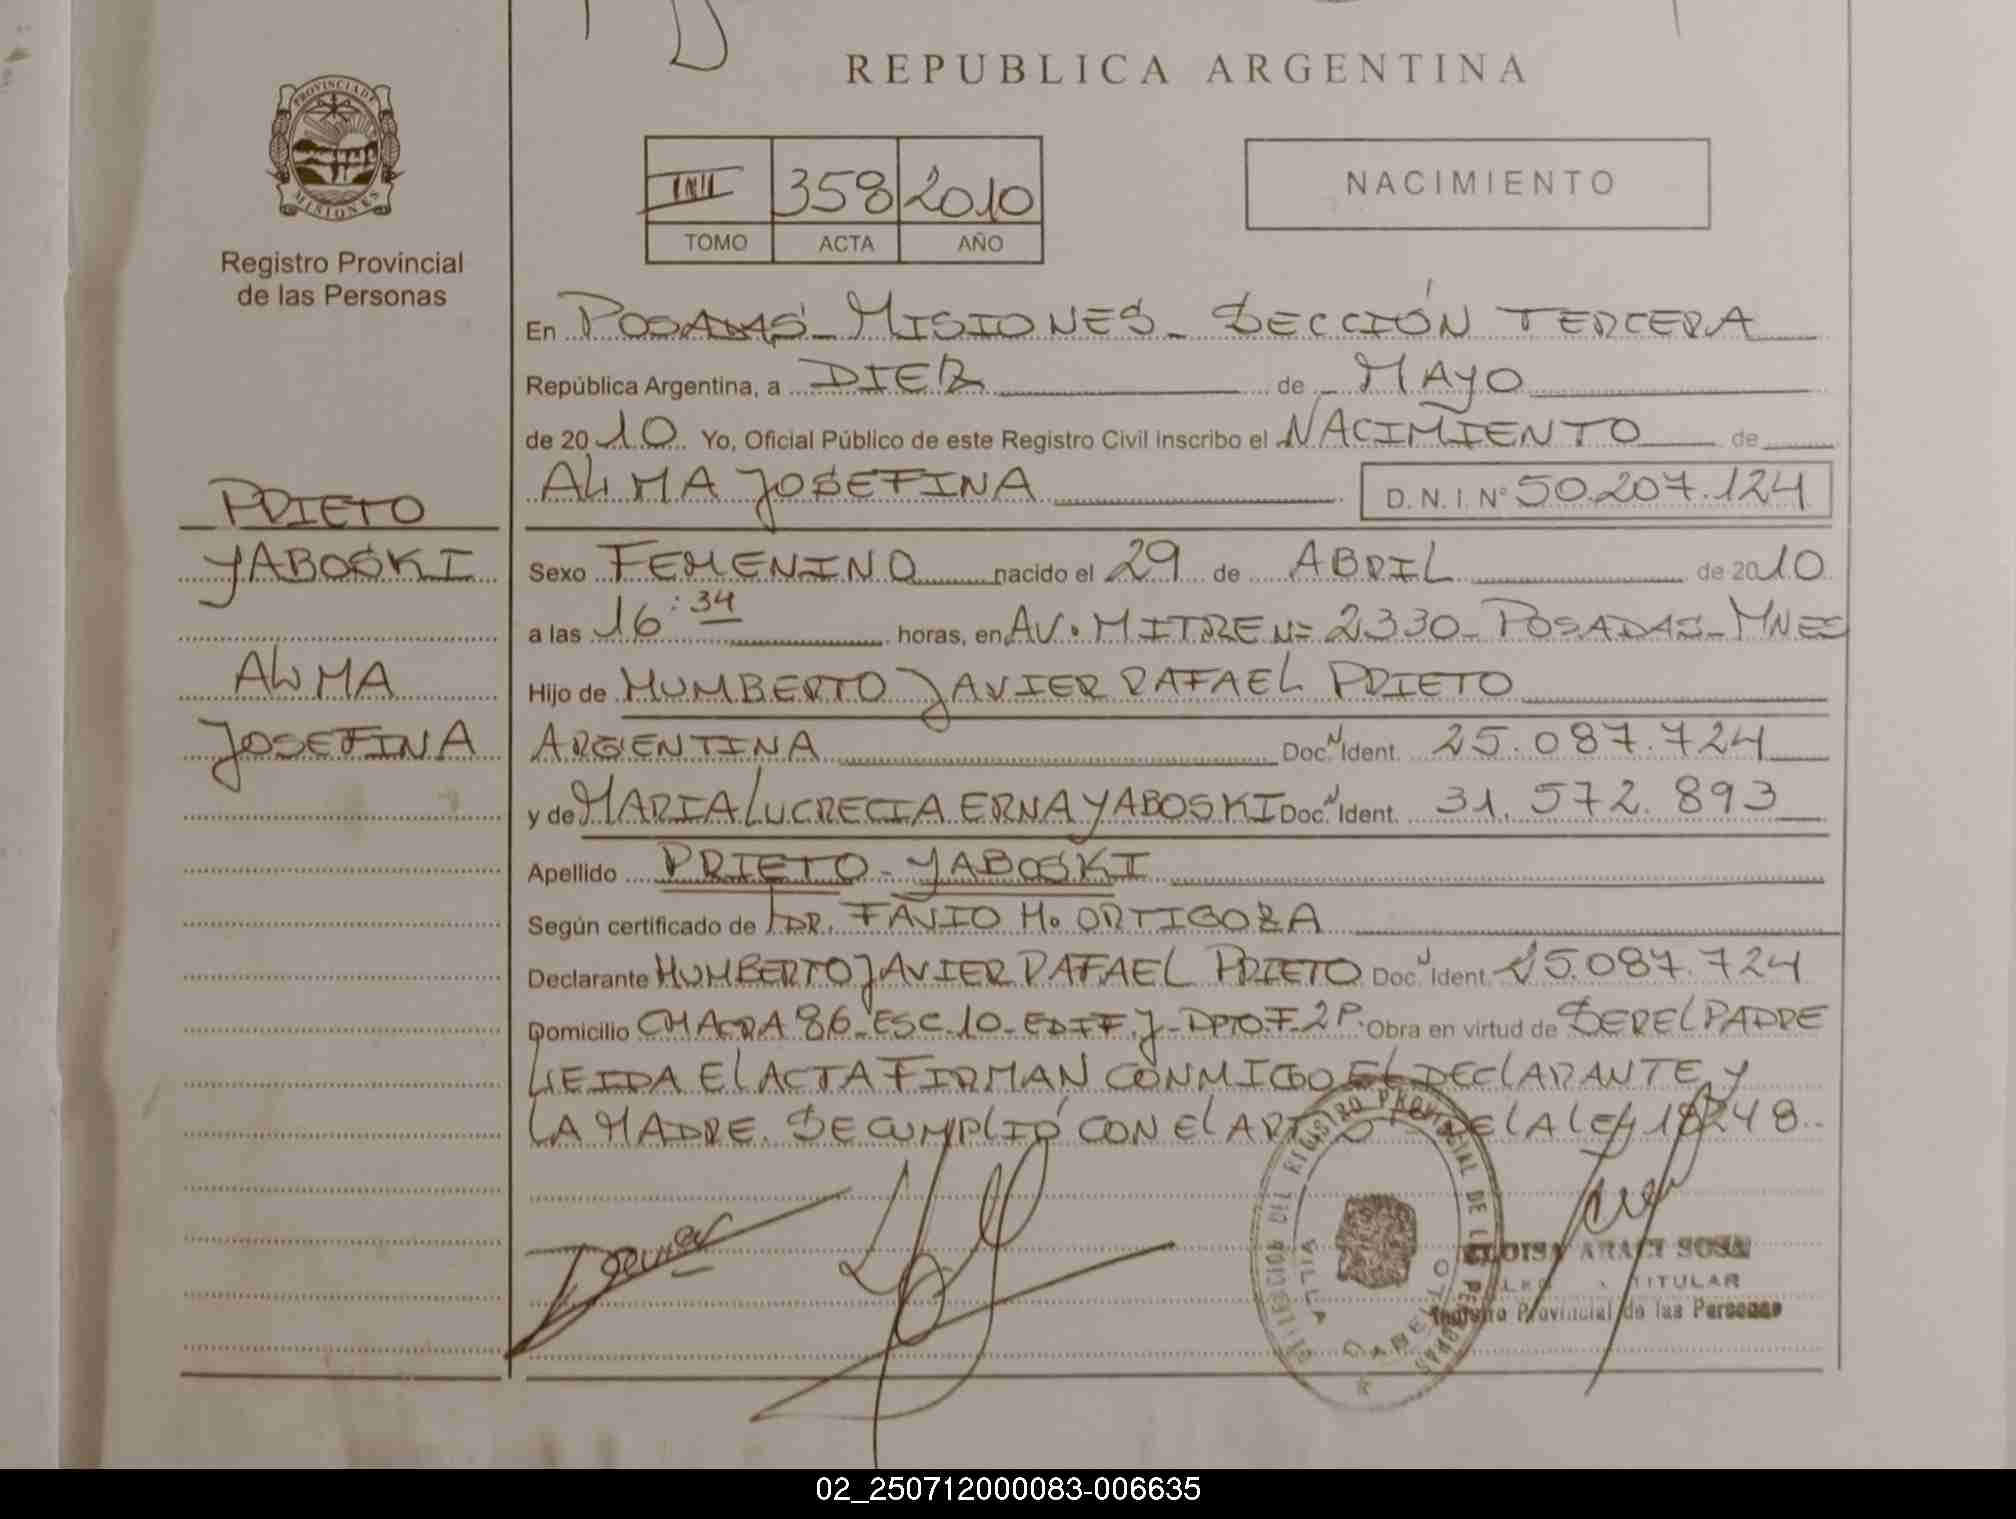 REPUBLICA ARGENTINA
PROVINCIA DE
MISIONES
Registro Provincial
de las Personas
358 2010
TOMO ACTA AÑO
NACIMIENTO
En POSADAS - MISIONES - SECCIÓN TERCERA
República Argentina, a DIEZ de MAYO
de 20 10 Yo, Oficial Público de este Registro Civil inscribo el NACIMIENTO de
ALMA JOSEFINA D. N. I. Nº 50.207.124
PRIETO
YABOSKI
ALMA
JOSEFINA
Sexo FEMENINO nacido el 29 de ABRIL de 2010
a las 16:34 horas, en AV. MITRE Nº 2330 - POSADAS - MNES
Hijo de HUMBERTO JAVIER RAFAEL PRIETO
ARGENTINA Doc. Ident. 25.087.724
y de MARIA LUCRECIA ERNA YABOSKI Doc. Ident. 31.572.893
Apellido PRIETO - YABOSKI
Según certificado de DR. FAVIO M. ORTIGOZA
Declarante HUMBERTO JAVIER RAFAEL PRIETO Doc. Ident. 25.087.724
Domicilio CHACRA 86 - ESC. 10 - EDIF. J - DPTO. F - 2P. Obra en virtud de SER EL PADRE
LEIDA EL ACTA FIRMAN CONMIGO EL DECLARANTE Y
LA MADRE. SE CUMPLIÓ CON EL ART DE LA LEY 18248.
REGISTRO PROVINCIAL DE
ELOISA ARACI SOSA
TITULAR
Registro Provincial de las Personas
02_250712000083-006635